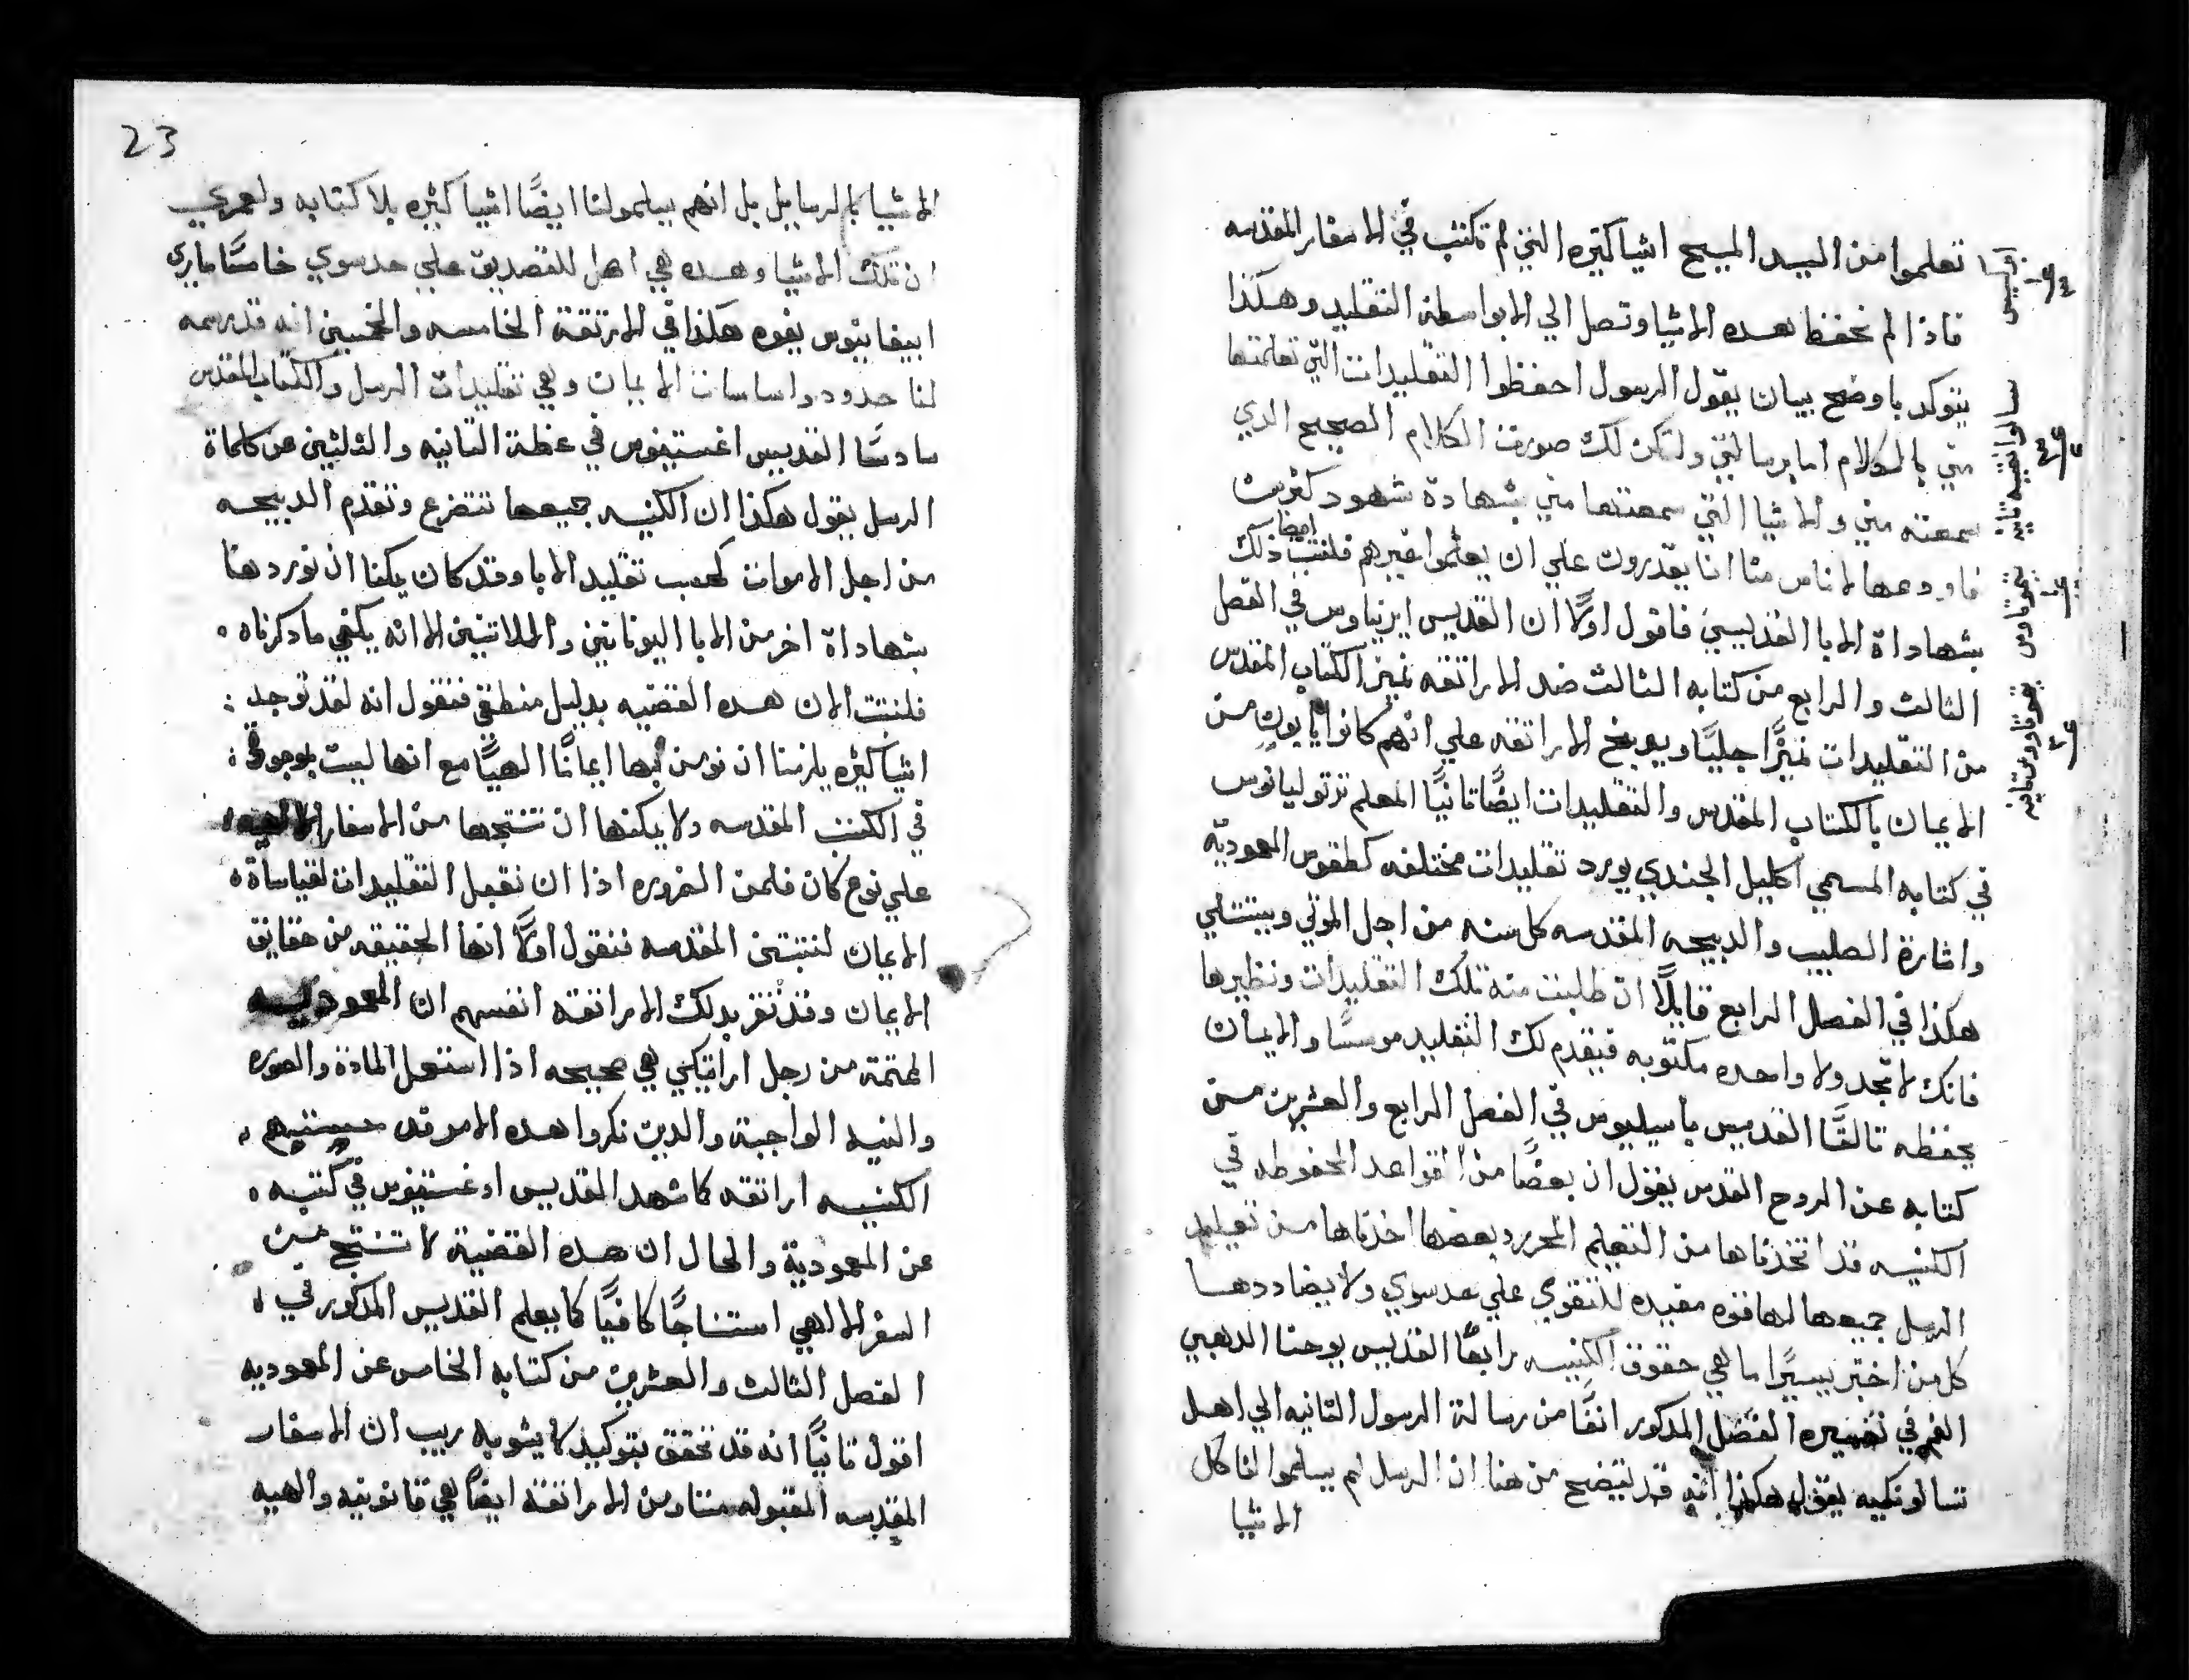 تعلموا من السيد المسيح اشيا كثيره التي لم تكتب في الاسفار المقدسه
فاذا لم نحفظ هده الاشيا وتصل الي الا بواسطة التقليد وهكذا
يتوكد باوضح بيان بقول الرسول احفظوا التقليدات التي تعلمتها
مني بالكلام اما برسالتي ولتكن لك صورت الكلام الصحيح الدي
سمعته مني والاشيا التي سمعتها مني بشهادة شهود كثرين
فاودعها لاناس منا انا يقدرون علي ان يعلموا غيرهم فلنثبت ايضا ذلك
بشهاداة الابا القديسين فاقول اولًا ان القديس ايريناوس في الفصل
الثالث والرابع من كتابه الثالث ضد الاراتقه يميز الكتاب المقدس
من التقليدات تميزًا جليًا ويوبخ الاراتقه علي انهم كانوا يابون من
الايمان بالكتاب المقدس والتقليدات ايضًا تانيًا المعلم ترتوليانوس
في كتابه المسمي اكليل الجندي يورد تقليدات مختلفه كطقوس المعوديه
واشارة الصليب والدبيحه المقدسه كل سنه من اجل الموتي ويستتلي
هكذا في الفصل الرابع قايلًا ان طلبت منه تلك التقليدات ونظيرها
فانك لا تجد ولا واحده مكتوبه فيقدم لك التقليد موسسًا والايمان
يحفظه تالتًا القديس باسيليوس في الفصل الرابع والعشرين من
كتابه عن الروح القدس يقول ان بعضًا من القواعد المحفوظه في
الكنيسه قد اتخذناها من التعليم المحرر وبعضها اخذناها من تعليم
الرسل جميعها لها قوه مفيده للتقوي علي حدسوي ولا يضاددها
كل من اختبر يسيرًا ما هي حقوق الكنيسه رابعًا القديس يوحنا الدهبي
الفم في تفسيره الفصل المدكور انفًا من رسالة الرسول التانيه الي اهل
تسالونكيه يقول هكذا انه قد يتضح من هنا ان الرسل لم يسلموا لنا كل
الاشيا
افسس
تسالوانقيه تانيه
تيموتاوس
تيموتاوس تانيه
23
الاشيا بالرسايل بل انهم سلمولنا ايضًا اشيا كثيره بلا كتابه ولعمري
ان تلك الاشيا وهده هي اهل للتصديق علي حدسوي خامسًا ماري
ابيفانيوس يفوه هكذا في الارتقة الخامسه والخمسين انه قد رسمه
لنا حدود واساسات الايمان وهي تقليدات الرسل والكتاب المقدس
سادسًا القديس اغستينوس في عظة التانيه والتلتين من كلماة
الرسل يقول هكذا ان الكنيسه جميعها تتضرع وتقدم الدبيحه
من اجل الاموات كحسب تقليد الابا وقد كان يمكنا ان نورد هنا
شهاداة اخر من الابا اليونانين والملاتنيين الا انه يكفي مادكرناه
فلنتبت الان هده القضيه بدليل منطقي فنقول انه لقد توجد
اشيا كثيره يلزمنا ان نومن بها ايمانًا الهيًا مع انها ليست بموجوده
في الكتب المقدسه ولا يمكنها ان تنتجها من الاسفار الالهيه
علي نوع كان فلمن الضروره اذا ان نقبل التقليدات لقياساة
الايمان المقدسه فنقول اولًا انها الحقيقه من حقايق
الايمان وقد تقر بدلك الاراتقة انفسهم ان المعوديه
المتممة من رجل اراتيكي هي صحيحه اذا استعمل المادة والصوره
والنيه الواجبة والدين نكروا هده الامر قد حسبتهم
الكنيسه اراتقه كما شهد القديس اوغستينوس في كتبه
عن المعودية والحال ان هده القضية لا تنتج من
السفر الالهي استنتاجًا كافيًا كما يعلم القديس المدكور في
الفصل الثالث والعشرين من كتابه الخامس عن المعوديه
اقول تانيًا انه قد تحقق بتوكيد لا يشوبه ريب ان الاسفار
المقدسه المقبوله منا ومن الاراتقة ايضًا هي قانونيه والهيه